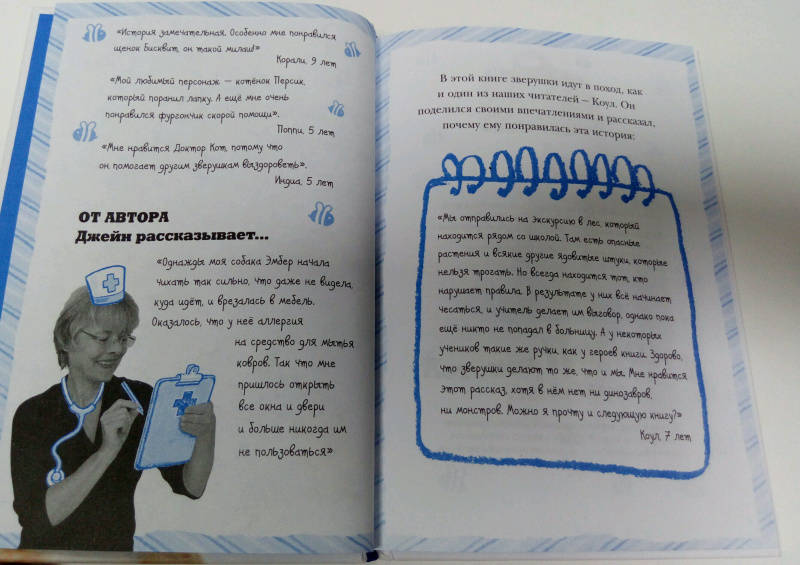 «История замечательная. Особенно мне понравился
щенок Бисквит, он такой милаш!»
Корали, 9 лет
«Мой любимый персонаж — котёнок Персик,
который поранил лапку. А ещё мне очень
понравился фургончик скорой помощи».
Поппи, 5 лет
«Мне нравится Доктор Кот, потому что
он помогает другим зверушкам выздороветь».
Индиа, 5 лет
ОТ АВТОРА
Джейн рассказывает...
«Однажды моя собака Эмбер начала
чихать так сильно, что даже не видела,
куда идёт, и врезалась в мебель.
Оказалось, что у неё аллергия
на средство для мытья
ковров. Так что мне
пришлось открыть
все окна и двери
и больше никогда им
не пользоваться»
В этой книге зверушки идут в поход, как
и один из наших читателей – Коул. Он
поделился своими впечатлениями и рассказал,
почему ему понравилась эта история:
«Мы отправились на экскурсию в лес, который
находится рядом со школой. Там есть опасные
растения и всякие другие ядовитые штуки, которые
нельзя трогать. Но всегда находится тот, кто
нарушает правила. В результате у них всё начинает
чесаться, и учитель делает им выговор, однако пока
ещё никто не попадал в больницу. А у некоторых
учеников такие же ручки, как у героев книги. Здорово,
что зверушки делают то же, что и мы. Мне нравится
этот рассказ, хотя в нём нет ни динозавров,
ни монстров. Можно я прочту и следующую книгу?»
Коул, 7 лет